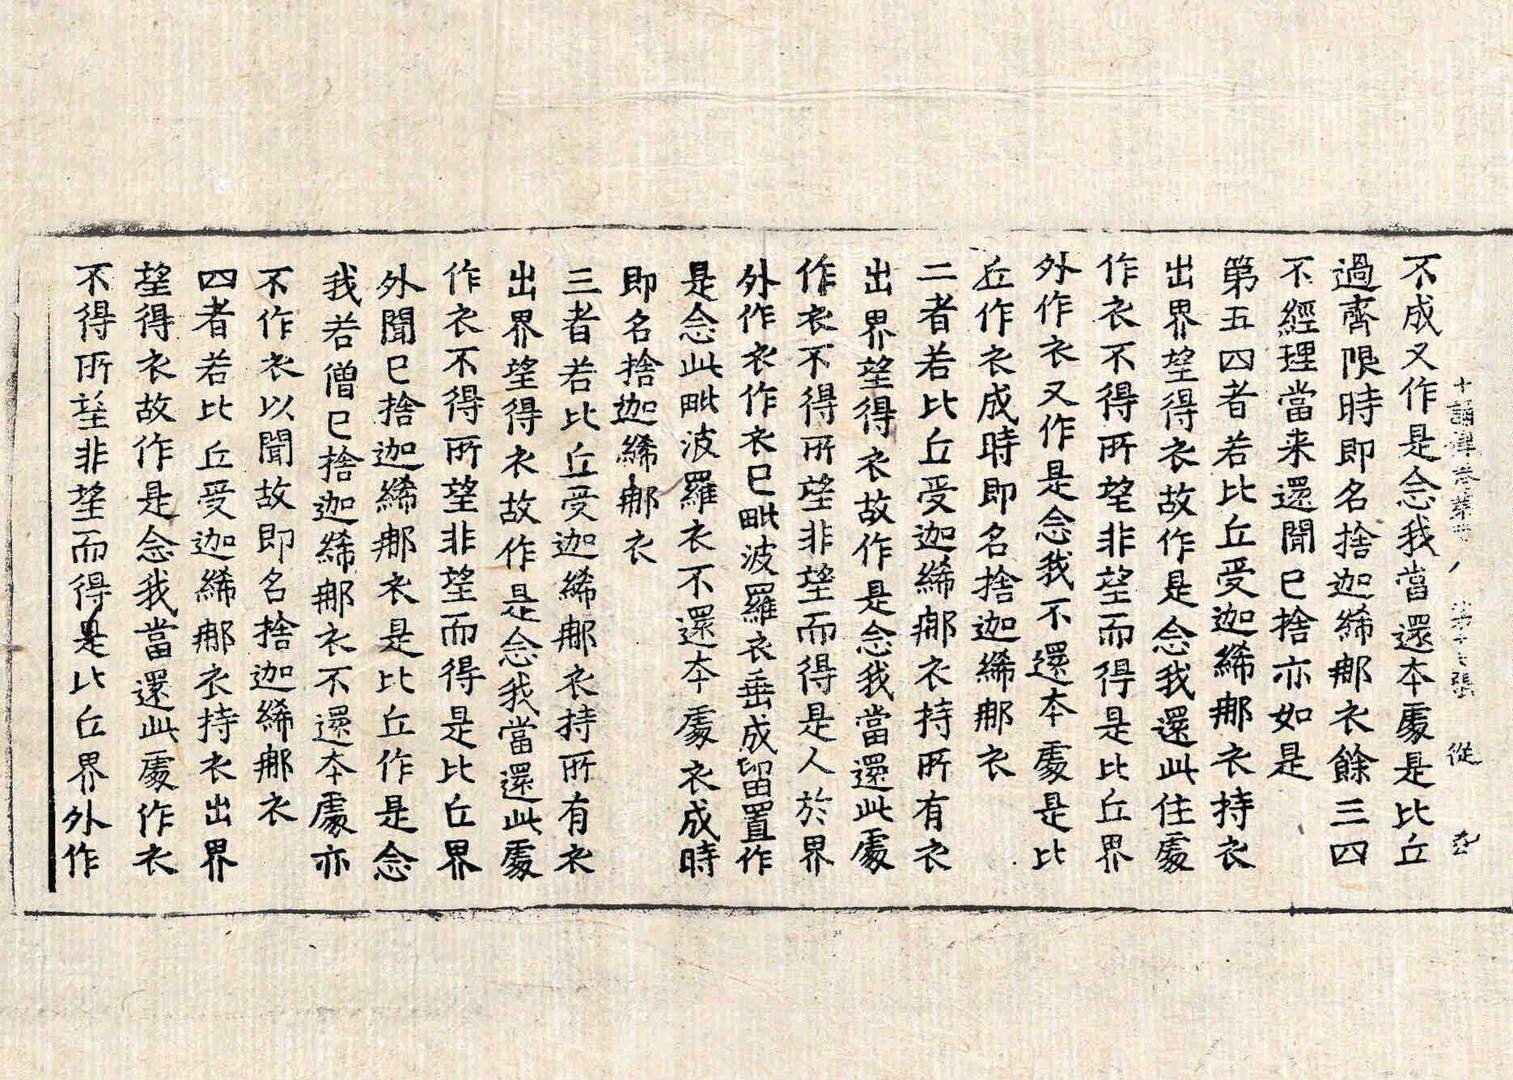 十誦律卷第廿八 第十七張 從
不成又作是念我當還本處是比丘
過齊限時即名捨迦絺那衣餘三四
不經理當来還聞已捨亦如是
第五四者若比丘受迦絺那衣持衣
出界望得衣故作是念我還此住處
作衣不得所望非望而得是比丘界
外作衣又作是念我不還本處是比
丘作衣成時即名捨迦絺那衣
二者若比丘受迦絺那衣持所有衣
出界望得衣故作是念我當還此處
作衣不得所望非望而得是人於界
外作衣作衣已毗波羅衣垂成留置作
是念此毗波羅衣不還本處衣成時
即名捨迦絺那衣
三者若比丘受迦絺那衣持所有衣
出界望得衣故作是念我當還此處
作衣不得所望非望而得是比丘界
外聞已捨迦絺那衣是比丘作是念
我若僧已捨迦絺那衣不還本處亦
不作衣以聞故即名捨迦絺那衣
四者若比丘受迦絺那衣持衣出界
望得衣故作是念我當還此處作衣
不得所望非望而得是比丘界外作